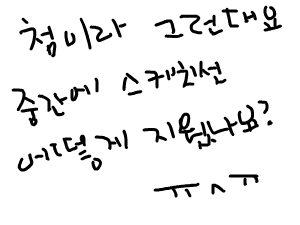 첨이라 그런대요
중간에 스케치선
어떻게 지웁나요?
ㅠㅅㅠ